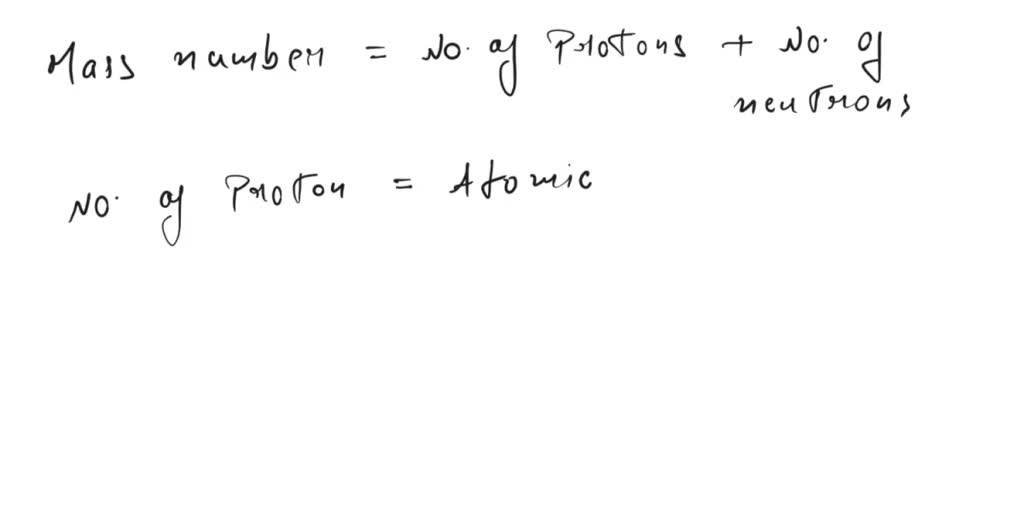 Mass number = No. of Protons + No. of
neutrons
No. of Proton = Atomic